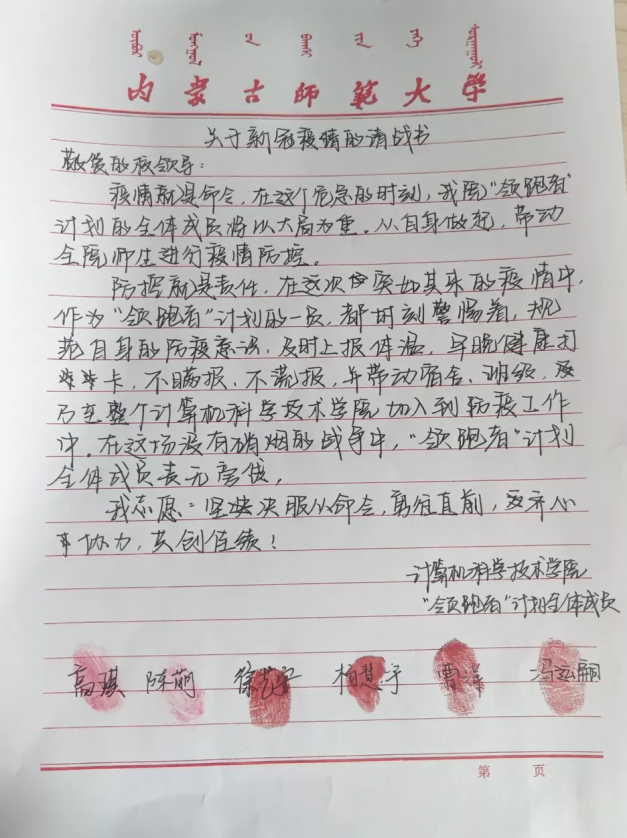 内蒙古师范大学
关于新冠疫情的请战书
敬爱的校领导：
疫情就是命令，在这个危急的时刻，我院“领跑者”
计划的全体成员将以大局为重，从自身做起，带动
全院师生进行疫情防控。
防控就是责任，在这次突如其来的疫情中，
作为“领跑者”计划的一员，都时刻警惕着，规
范自身的防疫意识，及时上报体温，早晚健康打
卡，不瞒报、不谎报，并带动宿舍、班级，及
乃至整个计算机科学技术学院加入到防疫工作
中。在这场没有硝烟的战争中，“领跑者”计划
全体成员责无旁贷。
我志愿：坚决服从命令，勇往直前，齐心
协力，共创佳绩！
计算机科学技术学院
“领跑者”计划全体成员
高琪 陈萌 徐 杨慧宇 曹泽
第 页